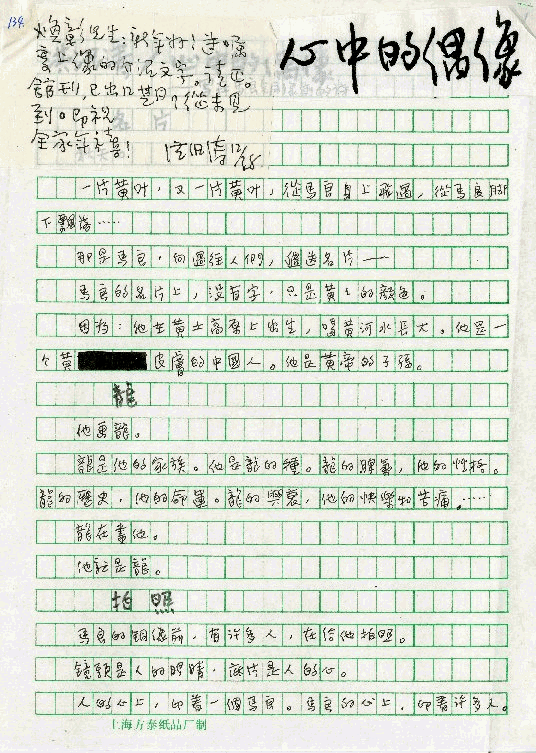 134.
心中的偶像
馆刊,已出12期
到。即祝
全家年禧!
12/28
名片
一片黃叶,又一片黃叶,從馬良身上飛過,從馬良脚
下飄落……
那是馬良,向過往人們,遞送名片——
馬良的名片上,沒有字,只是黃土的顏色。
因為:他在黃土高原上出生,喝黃河水長大。他是一
个黃皮膚的中國人。他是黃帝的子孫。
龍
他畫龍。
龍是他的家族。他是龍的種。龍的脾氣,他的性格。
龍的歷史,他的命運。龍的興衰,他的快樂和苦痛。……
龍在畫他。
他就是龍。
拍照
馬良的銅像前,有許多人,在給他拍照。
鏡頭是人的眼睛,底片是人的心。
人的心上,印着一個馬良。馬良的心上,印着許多人。
上海方泰纸品厂制